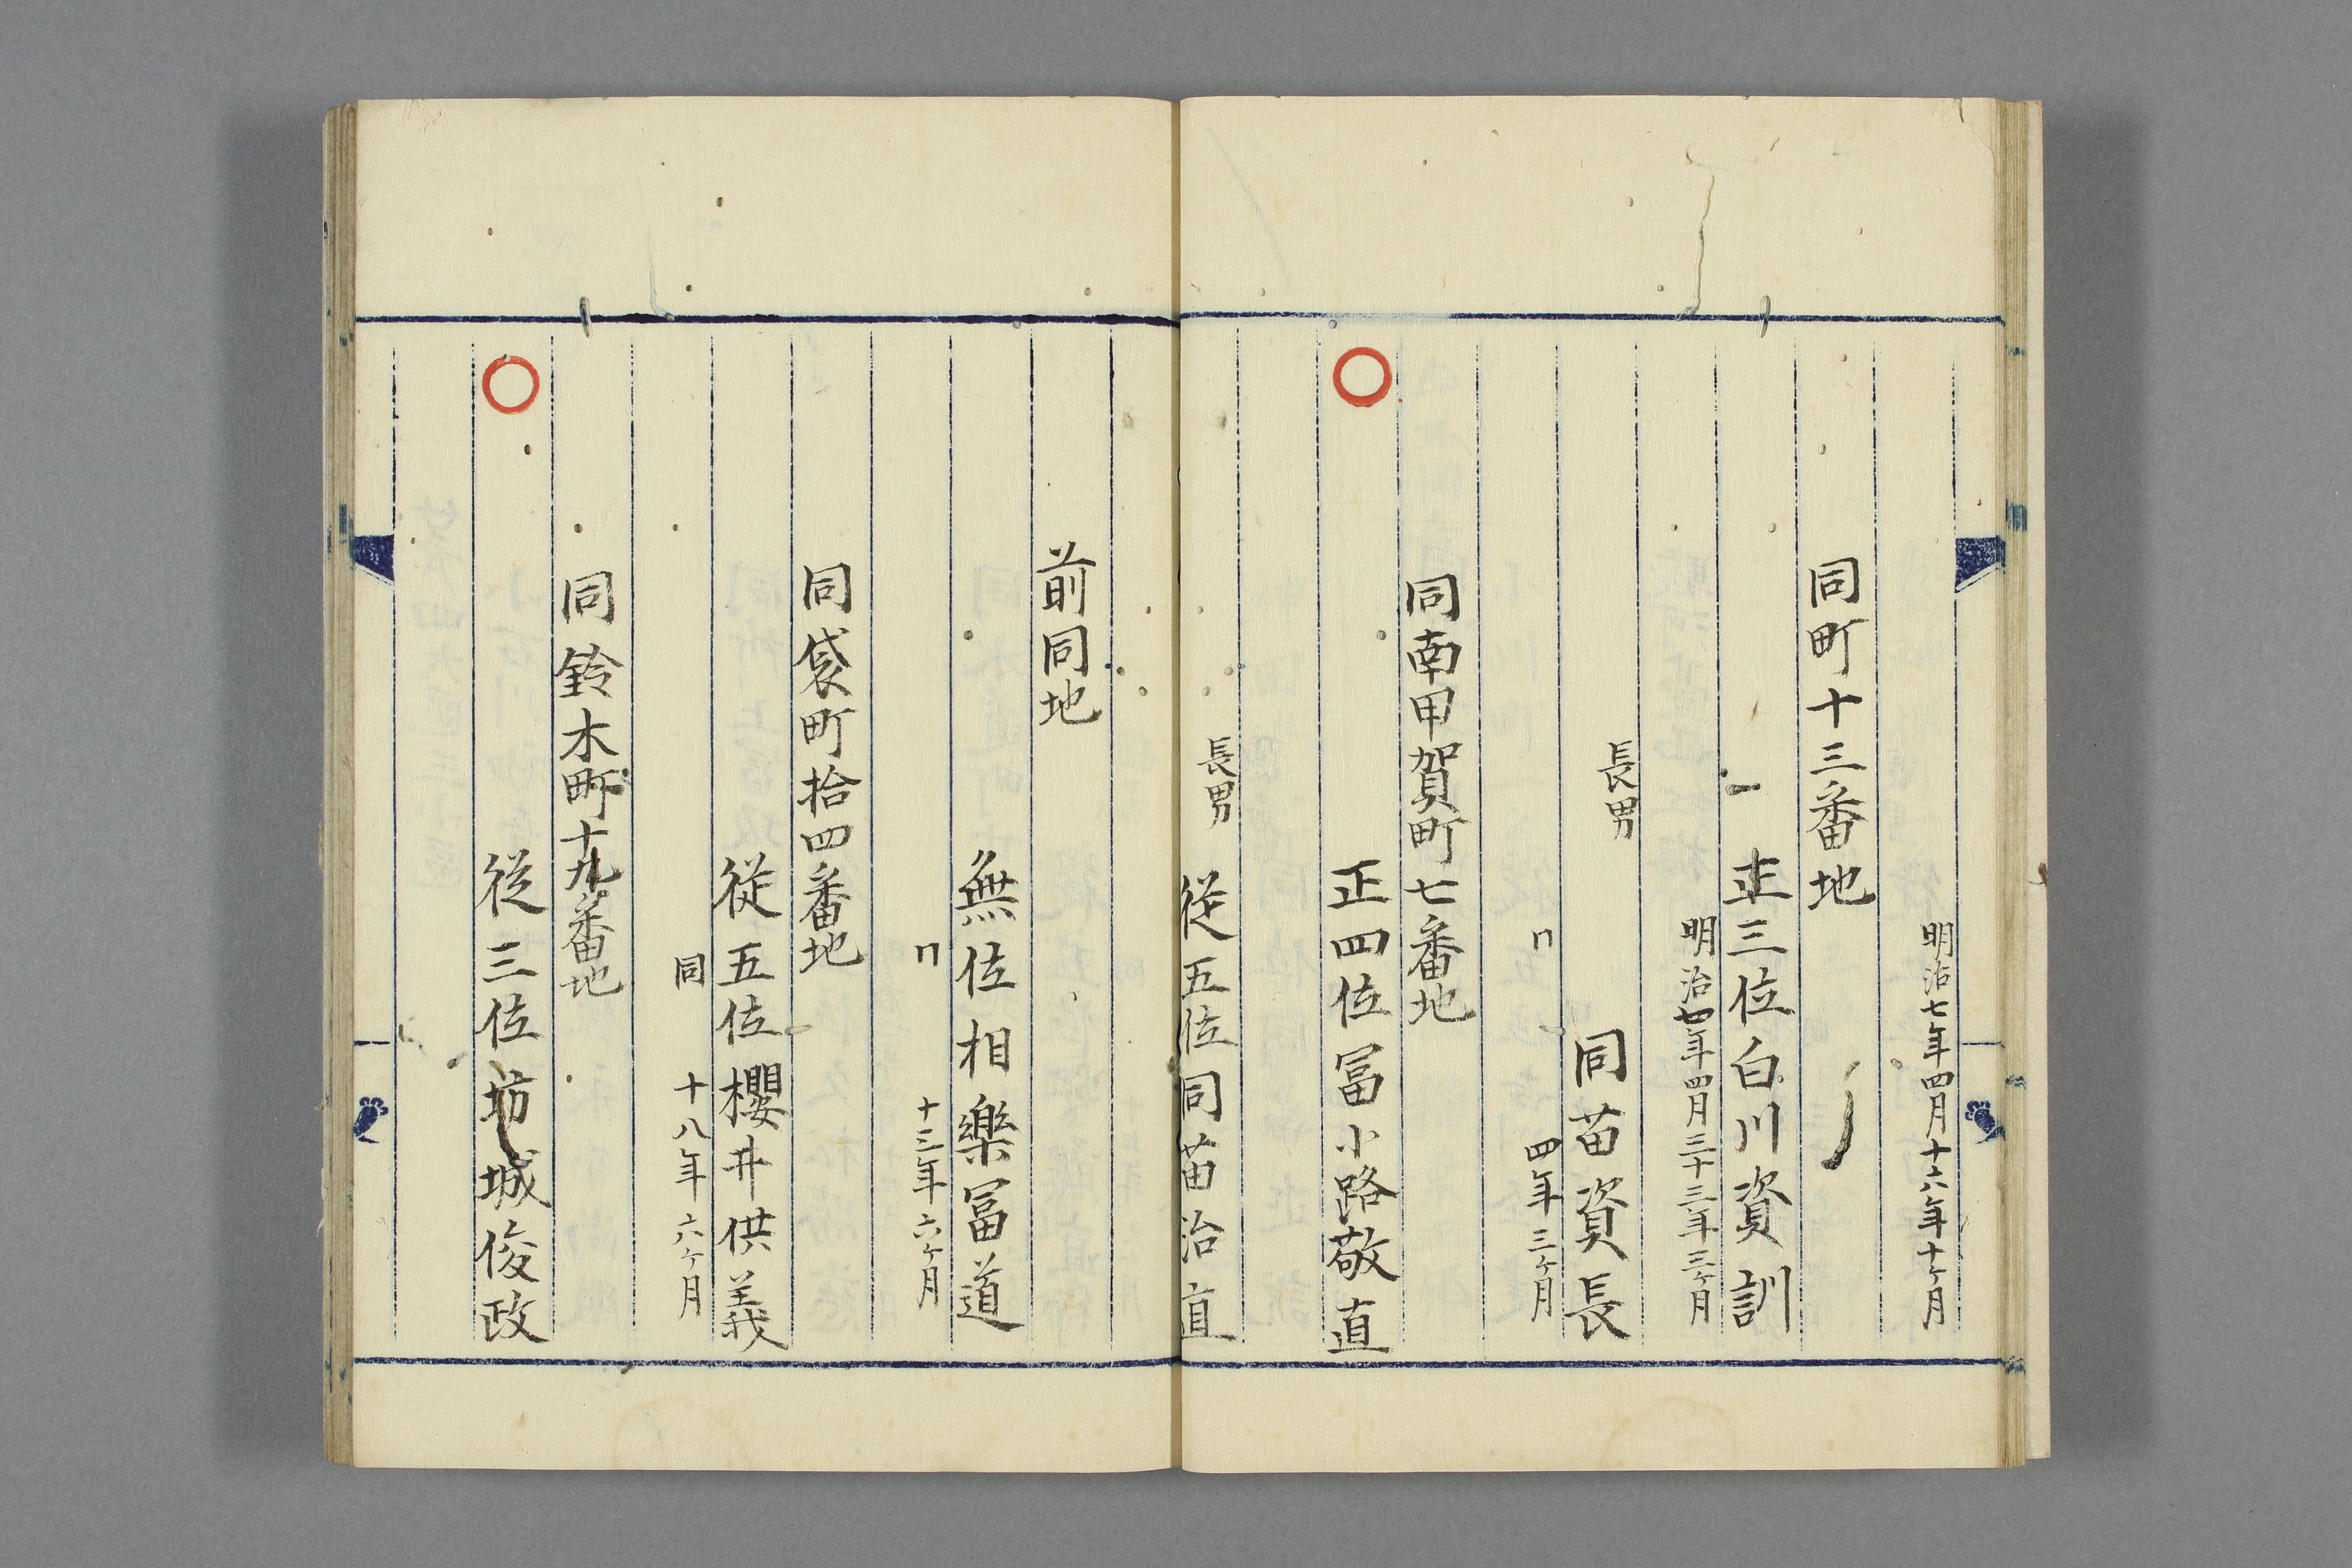 明治七年四月十六年十ヶ月
同町十三番地
正三位白川資訓
明治七年四月三十三年三ヶ月
長男
同苗資長
〃 四年三ヶ月
同南甲賀町七番地
正四位冨小路敬直
長男
従五位同苗治直
前同地
無位相樂冨道
〃 十三年六ヶ月
同袋町拾四番地
従五位櫻井供義
同 十八年六ヶ月
同鈴木町十九番地
従三位坊城俊政